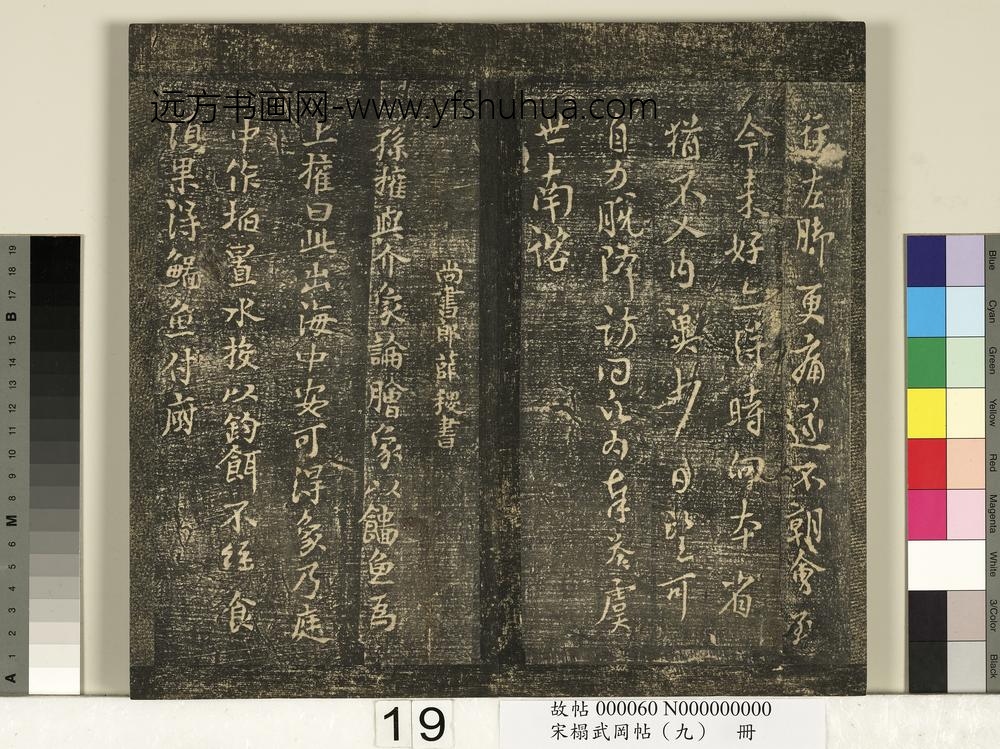 從左脚更痛遂不朝會至
今未好亦得時時向本省
猶不入内冀少日後可
自力脫降訪問願為奉答虞
世南諮
尚書郎薛稷書
孫權與介象論膾象以鯔魚為
上權曰此出海中安可得象乃庭
中作坎置水投以鈎餌不經食
頃果得鯔魚付厨
远方书画网-www.yfshuhua.com
故帖 000060 N000000000
宋榻武岡帖（九） 冊
19
19 18 17 B 16 15 14 13 12 11 10 9 8 M 7 6 5 4 3 2 1 A
Blue
Cyan
Green
Yellow
Red
Magenta
White
3/Color
Black